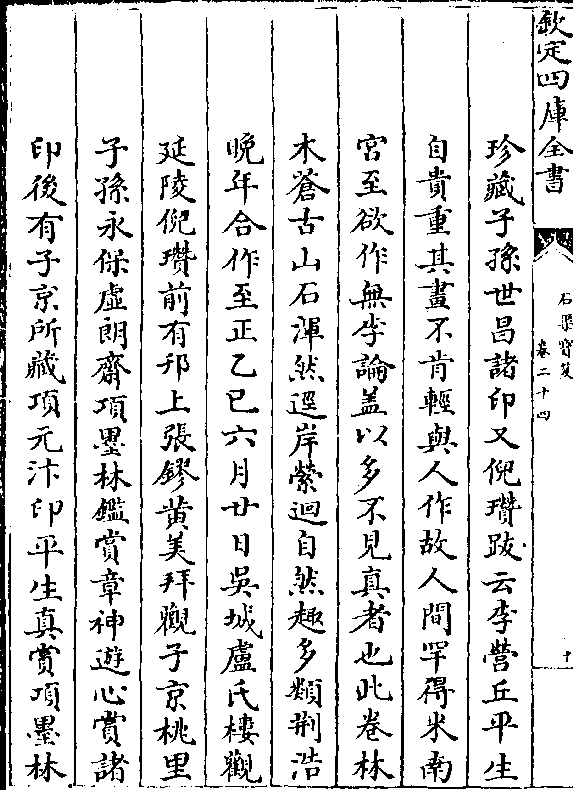 欽定四庫全書
石渠寶笈
卷二十四
十
珍藏子孫世昌諸印又倪瓚跋云李營丘平生
自貴重其畫不肯輕與人作故人間罕得米南
宮至欲作無李論盖以多不見真者也此卷林
木蒼古山石渾然逕岸縈迴自然趣多類荆浩
晚年合作至正乙巳六月廿日吳城盧氏樓觀
延陵倪瓚前有邗上張鏐黄美拜觀子京桃里
子孫永保虛朗齋項墨林鑑賞章神遊心賞諸
印後有子京所藏項元汴印平生真賞項墨林